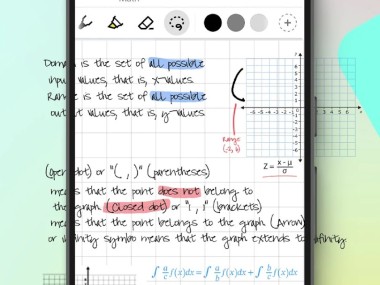 Domain is the set of all possible
input values, that is, x-values
Range is the set of all possible
output values, that is, y-values
Range
z = x-μ / σ
(open dot) or "( , )" (parentheses)
means that the point does not belong to
the graph (closed dot) or "[ , ]" (brackets)
means that the point belongs to the graph (Arrow)
or infinity symbol means that the graph extends to infinity
∫ᵃ꜀ f(x)dx = ∫ᵃb f(x)dx + ∫ᵇ꜀ f(x)dx